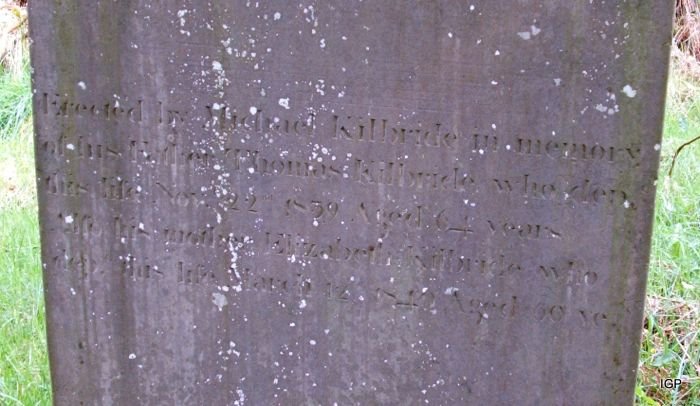 Erected by Michael Kilbride in memory
of his Father Thomas Kilbride who dep.
this life Nov. 22ⁿᵈ 1839 Aged 64 years
his mother Elizabeth Kilbride who
dep. this life March 12 Aged 60 ye
IGP